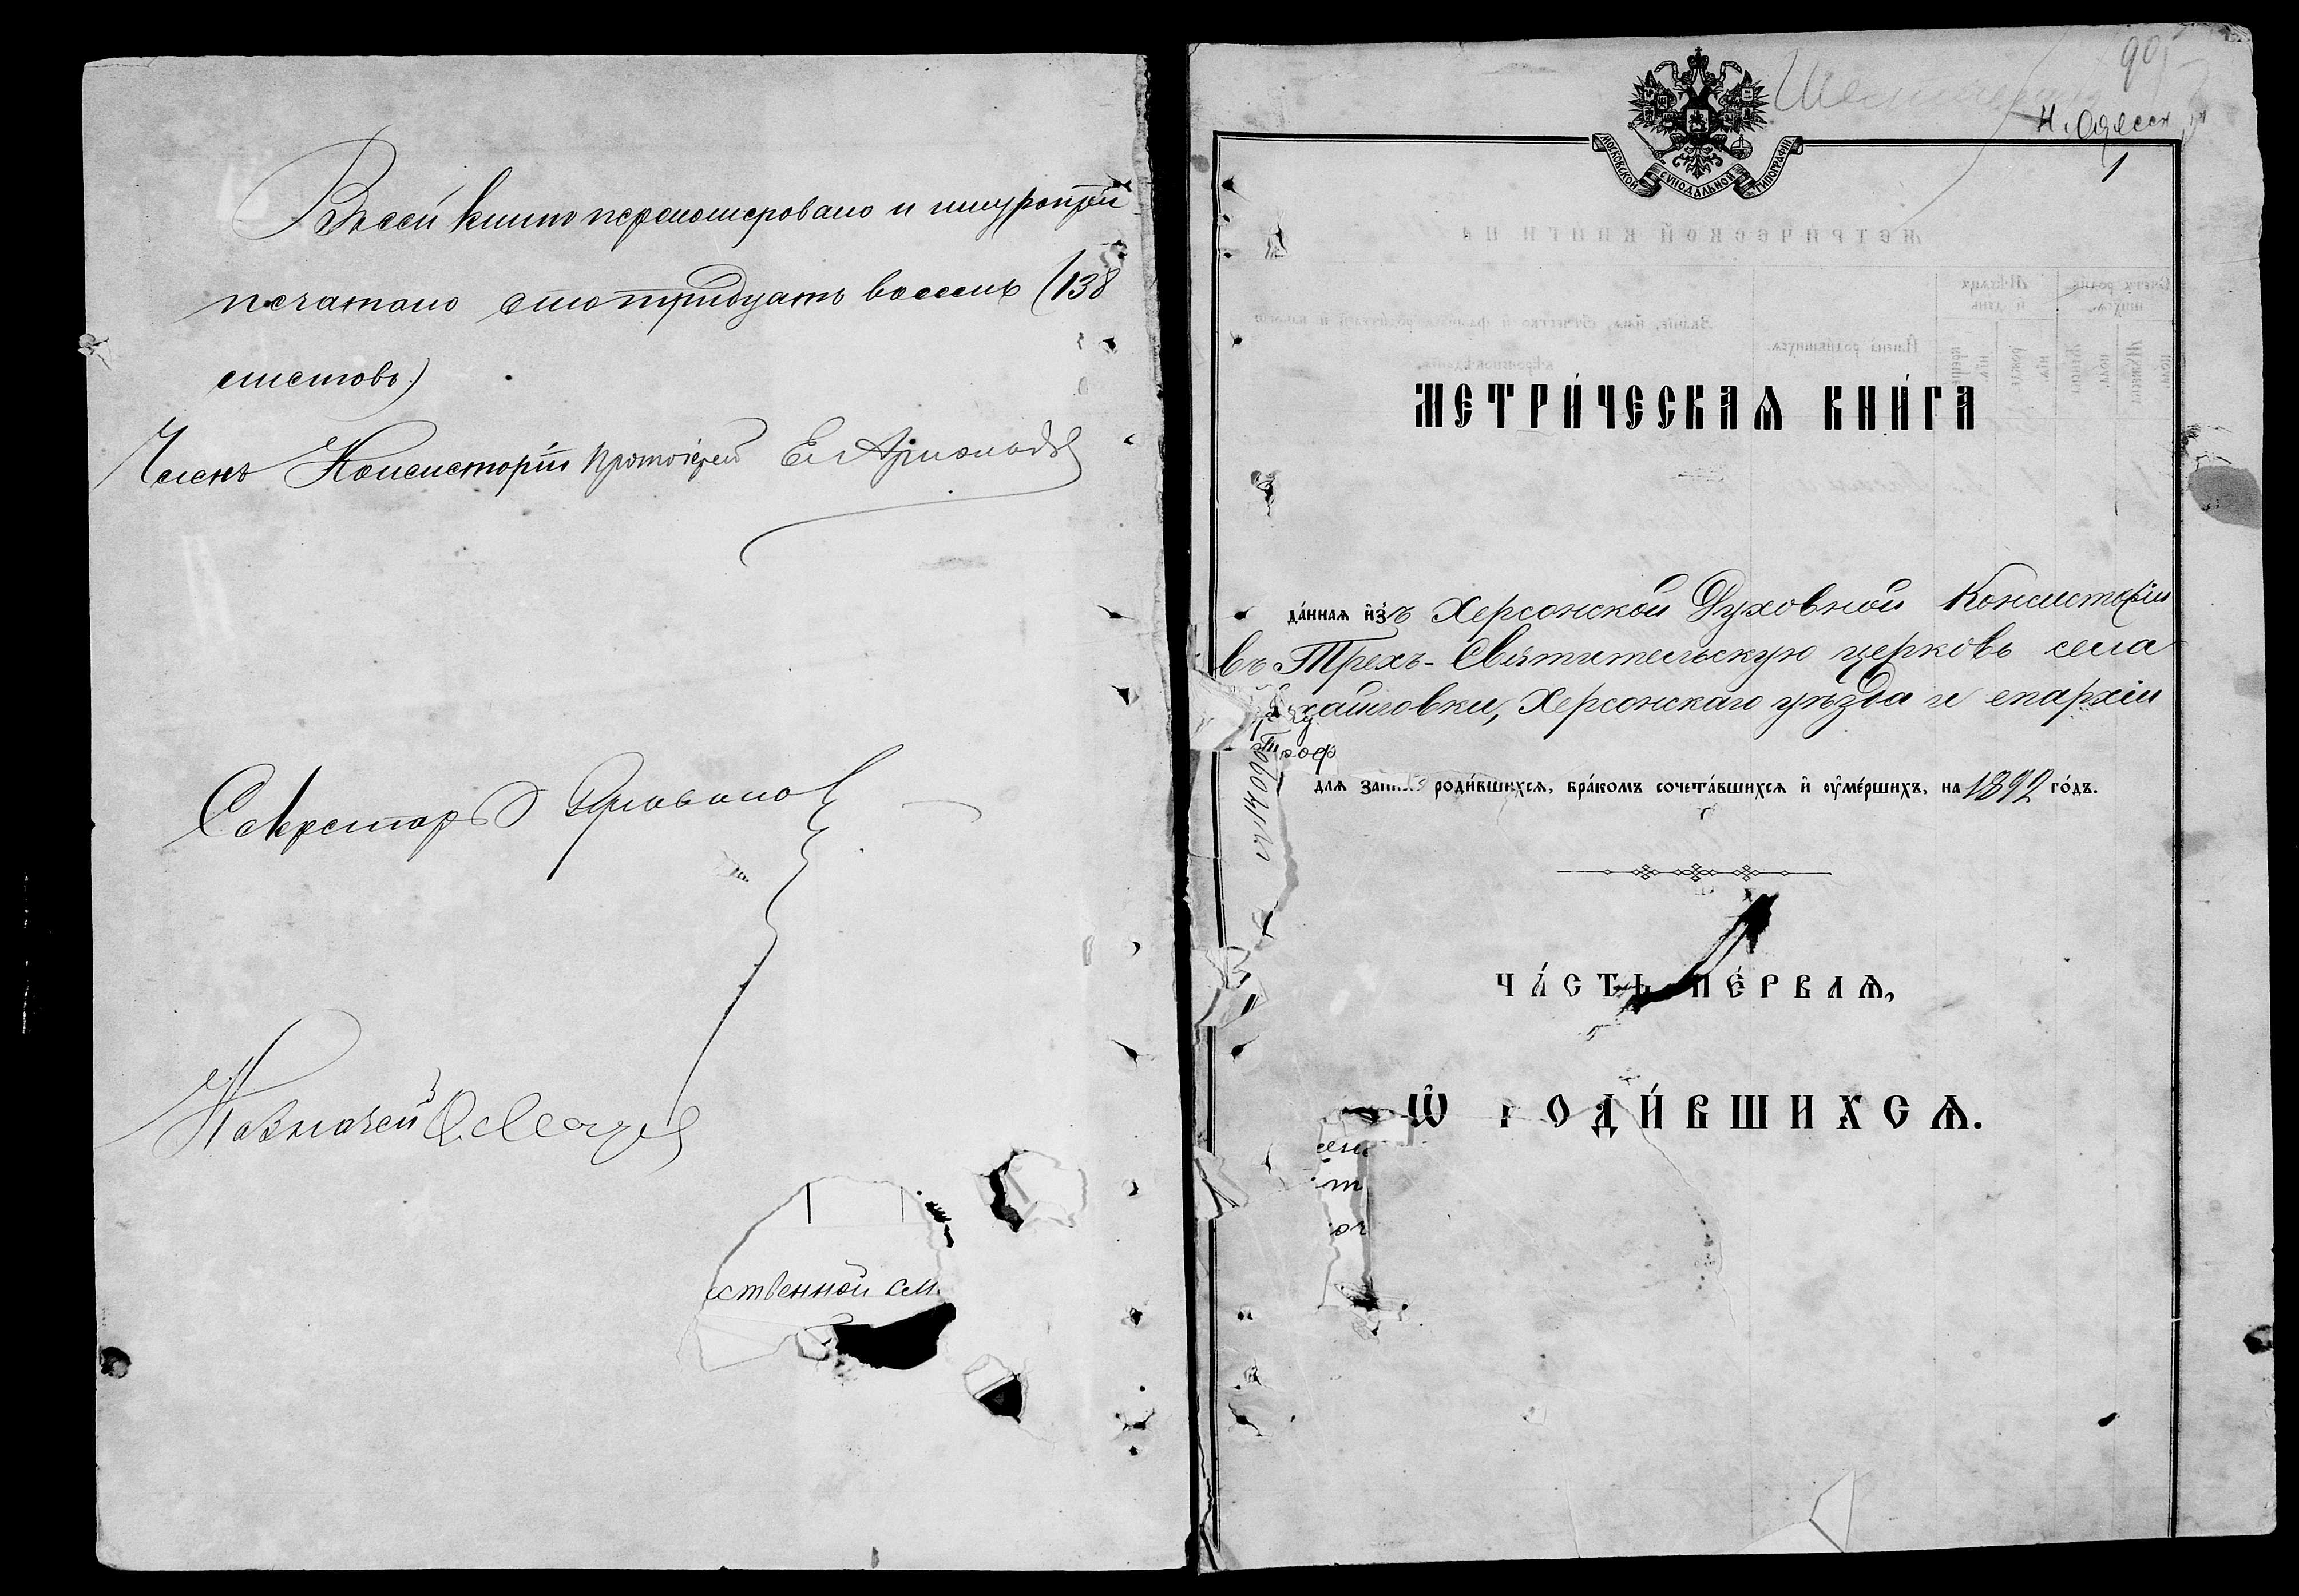 Въ сей книгѣ перенумеровано и шнуропри
печатано сто тридцать восемь (138
листовъ)
Членъ Консисторіи Протоіерей
Секретарь
Казначей
ственной сем
90
Н. Одесск
1
МОСКОВСКОЙ СѴНОДАЛЬНОЙ ТИПОГРАФІИ
МЕТРИ́ЧЕСКАѦ КНИ́ГА
да́ннаѧ и҆зъ Херсонской Духовной Консисторіи
въ Трехъ-Святительскую церковь села
хайловки, Херсонскаго уѣзда и епархіи
для роди́вшихсѧ, бра́комъ сочета́вшихсѧ и҆ оу҆ме́ршихъ, на 1892 го́дъ.
ЧА́СТЬ ПЕ́РВАѦ,
Ѡ҆ РОДИ́ВШИХСѦ.